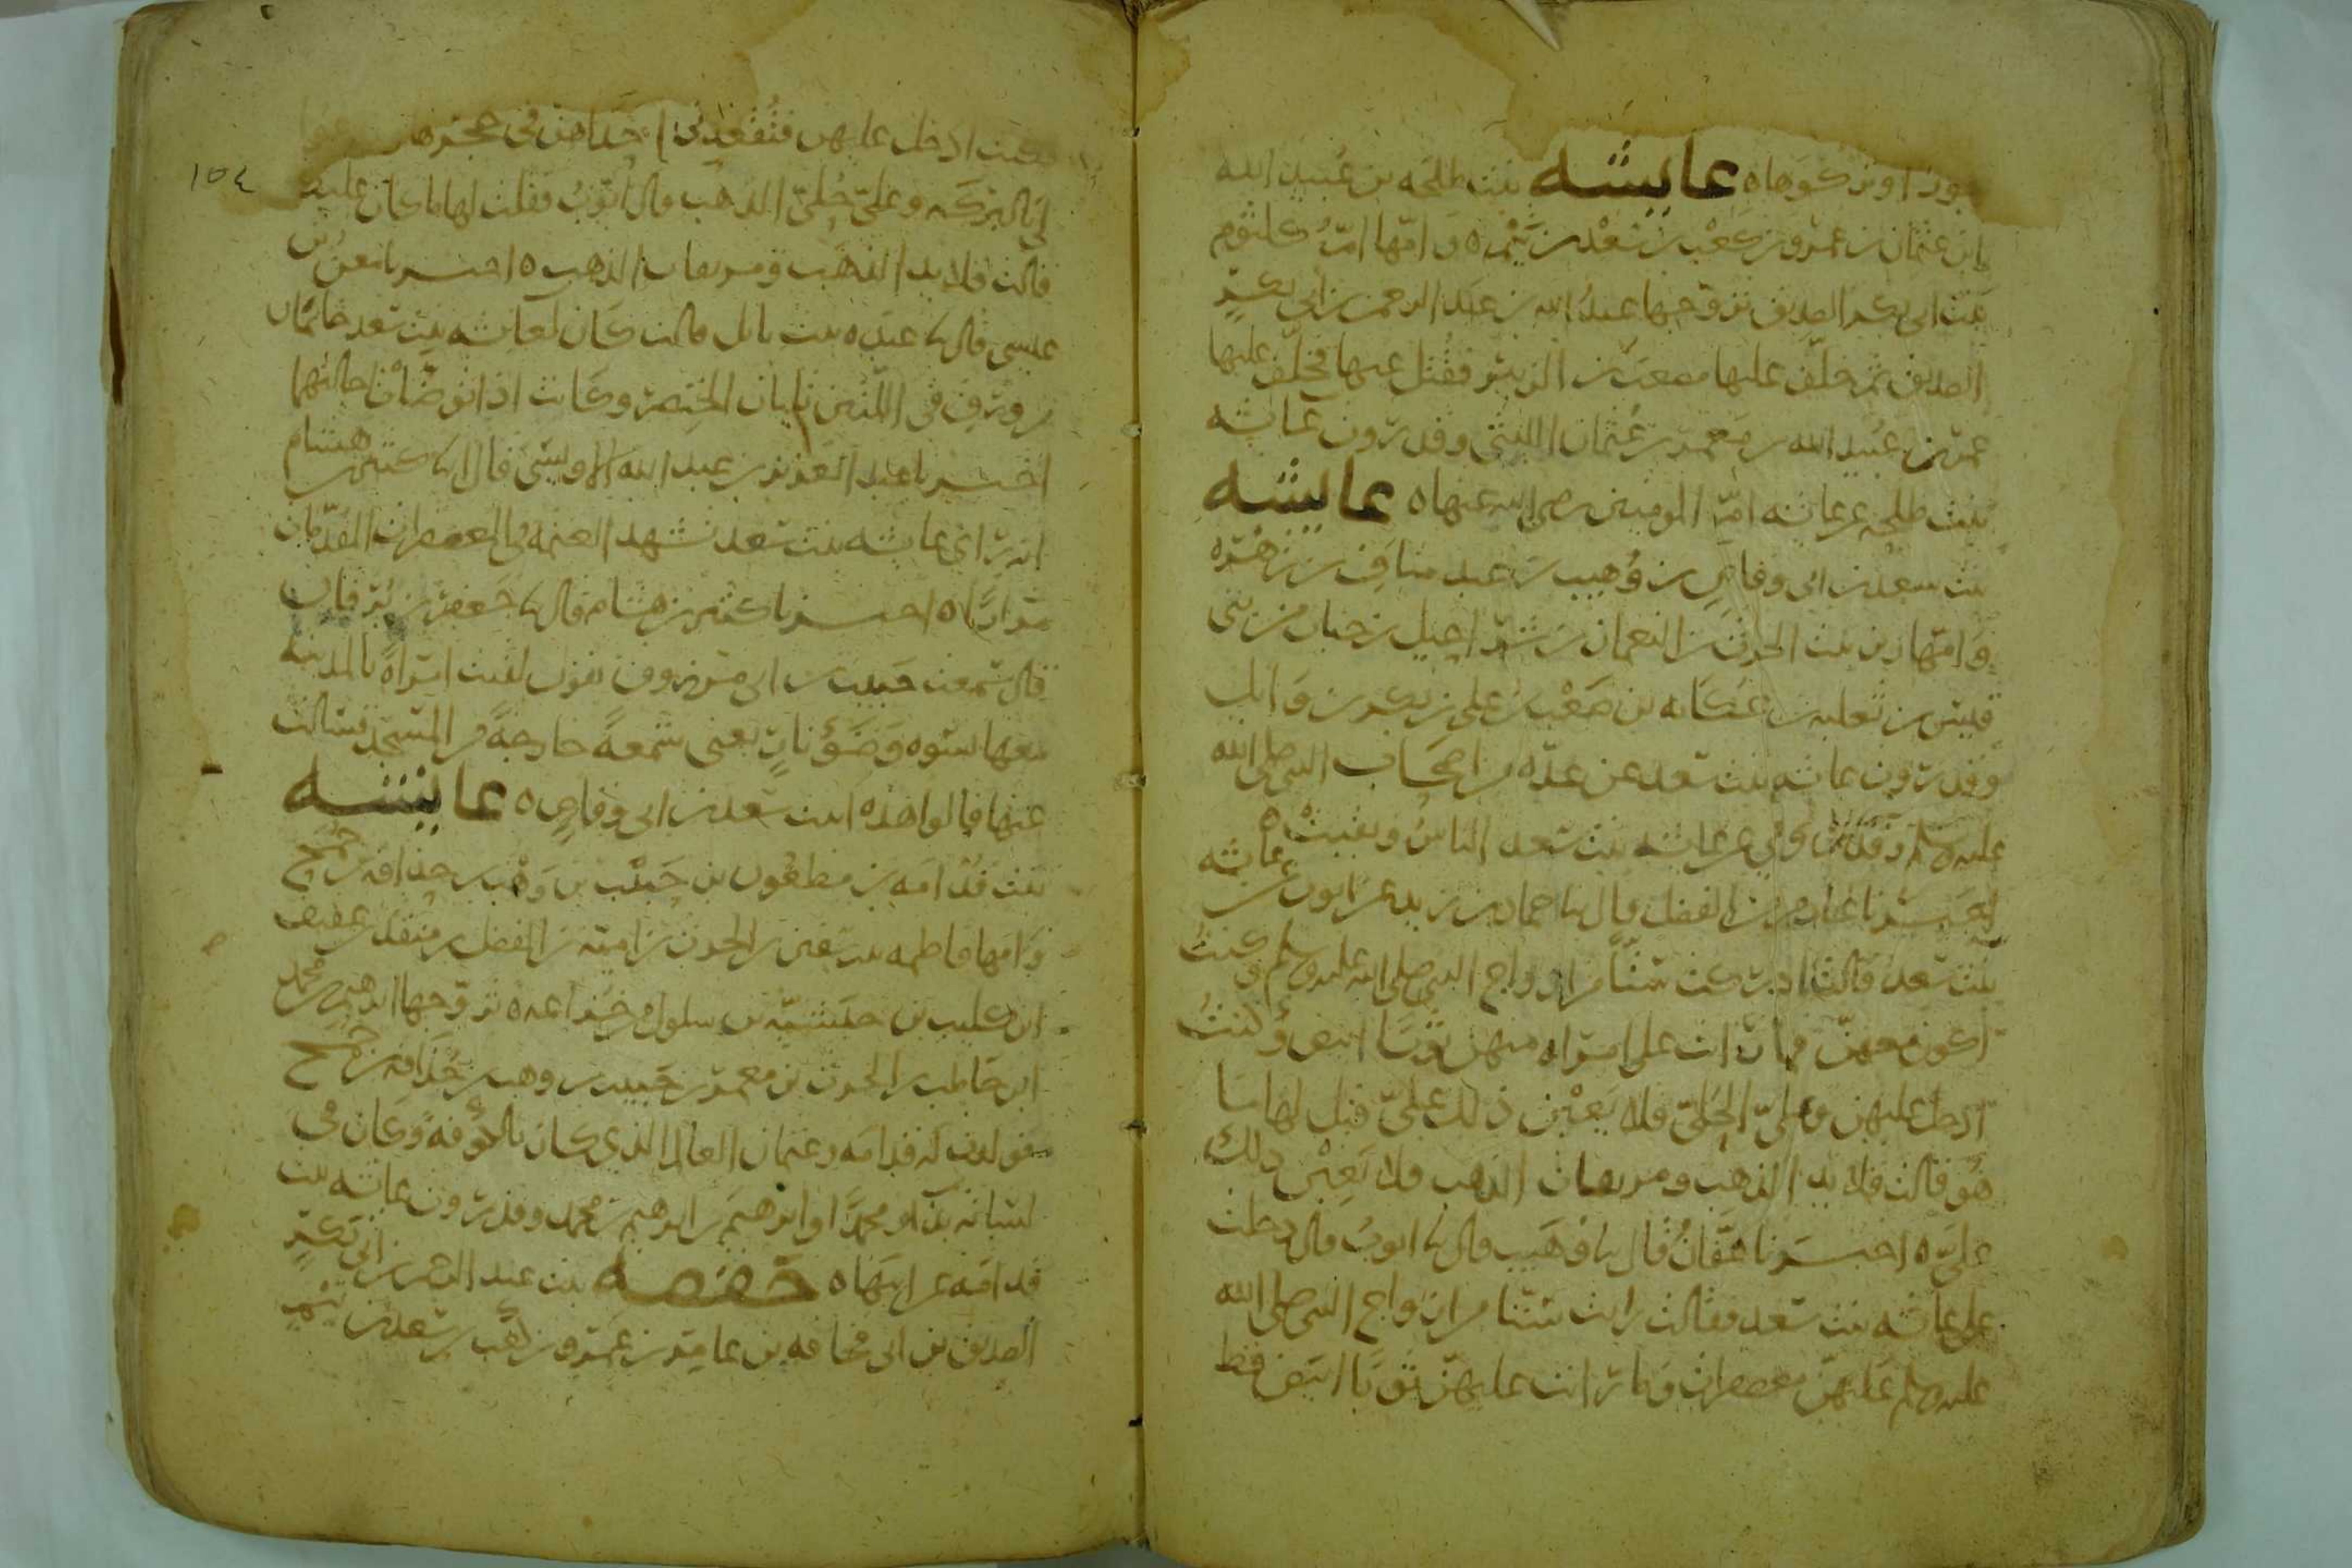 عايشه بنت طلحه بن عبيد الله
ابن عثمان بن عمرو بن كعب بن سعد بن تيم ه وامها ام كلثوم
بنت ابي بكر الصديق تزوجها عبد الله بن عبد الرحمن بن ابي بكر
الصديق ثم خلف عليها مصعب بن الزبير فقتل عنها فخلف عليها
عمر بن عبيد الله بن معمر بن عثمان التيمي وقد روت عايشه
بنت طلحه عن عايشه ام المومنين رضي الله عنها ه عايشه
بنت سعد بن ابي وقاص بن وهيب بن عبد مناف بن زهره
وامها زبن بنت الحرث بن النعمان بن شراحيل بن جناب من بني
قيس بن ثعلبه بن عكابه بن صعب بن علي بن بكر بن وايل
وقد روت عايشه بنت سعد عن عده من اصحاب النبي صلى الله
عليه وسلم وقد روي عن عايشه بنت سعد الناس وبقيت ه
اخبرنا عارم بن الفضل قال نا حماد بن زيد عن ايوب عن عايشه
بنت سعد قالت ادركت ستا من ازواج النبي صلى الله عليه وسلم وكنت
اكون معهن فما رايت على امراه منهن ثوبا ابيض وكنت
ادخل عليهن وعلي الحلي فلا يعبن ذلك علي قيل لها ما
هو قالت قلايد الذهب ومزيقيات الذهب فلا يعبن ذلك
علي ه اخبرنا عفان قال نا وهيب قال نا ايوب قال دخلت
على عايشه بنت سعد فقالت رايت ستا من ازواج النبي صلى الله
عليه وسلم عليهن معصفرات وما رايت عليهن ثوبا ابيض قط
١٥٤
وكنت ادخل عليهن فتقعدني احداهن في حجرها
لي بالبركه وعلي حلي الذهب قال ايوب فقلت لها ما كان عليه
قالت قلايد الذهب ومزيقيات الذهب ه اخبرنا معن بن
عيسى قال نا عبده بنت نابل قالت كان لعايشه بنت سعد خاتمان
من ورق في اللتين تليان الخنصر وكانت اذا توضات اجالتهما
اخبرنا عبد العزيز بن عبد الله الاويسي قال نا هشام
انه راى عايشه بنت سعد تشهد العتمه في المعصفرات
مرارا ه اخبرنا كثير بن هشام قال نا جعفر بن برقان
قال سمعت حبيب بن ابي مرزوق يقول لقيت امراه بالمدينه
معها نسوه وضوء نار يعني شمعه خارجه من المسجد فسالت
عنها قالوا هذه ابنت سعد بن ابي وقاص ه عايشه
بنت قدامه بن مظعون بن حبيب بن وهب بن حذافه بن جمح
وامها فاطمه بنت سفين بن الحرث بن اميه بن الفضل بن منقذ بن عفيف
ابن كليب بن حبشيه بن سلول من خزاعه ه تزوجها ابرهيم بن محمد
ابن حاطب بن الحرث بن معمر بن حبيب بن وهب بن حذافه بن جمح
فولدت له قدامه وعثمان العالم الذي كان بالكوفه وكان في
لسانه ومحمدا وابرهيم بن ابرهيم بن محمد وقد روت عايشه بنت
قدامه عن ابيها ه حفصه بنت عبد الرحمن بن ابي بكر
الصديق بن ابي قحافه بن عامر بن عمرو بن كعب بن سعد بن تيم